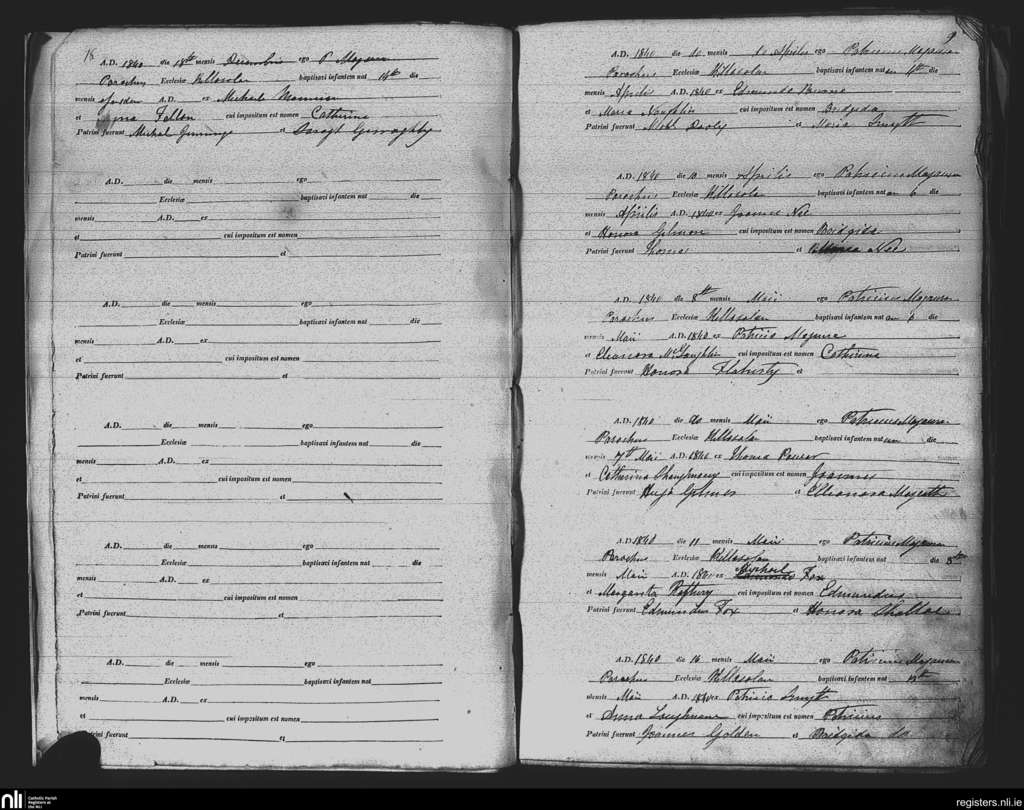 18
A.D. 1840 die 18th mensis Decembris ego P Magauran
Parochus Ecclesiæ Killasolan baptisavi infantem nat 16th die
mensis A.D. ex Michaele
et Fallon cui impositum est nomen Catherina
Patrini fuerunt Michael Jennings et Geraghty
A.D. die mensis ego
Ecclesiæ baptisavi infantem nat die
mensis A.D. ex
et cui impositum est nomen
Patrini fuerunt et
A.D. die mensis ego
Ecclesiæ baptisavi infantem nat die
mensis A.D. ex
et cui impositum est nomen
Patrini fuerunt et
A.D. die mensis ego
Ecclesiæ baptisavi infantem nat die
mensis A.D. ex
et cui impositum est nomen
Patrini fuerunt et
A.D. die mensis ego
Ecclesiæ baptisavi infantem nat die
mensis A.D. ex
et cui impositum est nomen
Patrini fuerunt et
A.D. die mensis ego
Ecclesiæ baptisavi infantem nat
mensis A.D. ex
et cui impositum est nomen
Patrini fuerunt et
9
A.D. 1840 die 10 mensis Aprilis ego Patricius Magauran
Parochus Ecclesiæ Killasolan baptisavi infantem nat 4th die
mensis Aprilis A.D. 1840 ex Edmundo
et Maria Naughlin cui impositum est nomen Bridgida
Patrini fuerunt et Maria Smyth
A.D. 1840 die 10 mensis Aprilis ego Patricius Magauran
Parochus Ecclesiæ Killasolan baptisavi infantem nat 6 die
mensis Aprilis A.D. 1840 ex Joannes Nee
et Honora Gilmon cui impositum est nomen Bridgida
Patrini fuerunt Thomas et Nee
A.D. 1840 die 8th mensis Maii ego Patricius Magauran
Parochus Ecclesiæ Killasolan baptisavi infantem nat 6 die
mensis Maii A.D. 1840 ex Patricio Maguire
et Eleanora McLaughlin cui impositum est nomen Catherina
Patrini fuerunt Honora Flaherty et
A.D. 1840 die 10 mensis Maii ego Patricius Magauran
Parochus Ecclesiæ Killasolan baptisavi infantem nat die
mensis 7th Maii A.D. 1840 ex Thoma Power
et Catherina cui impositum est nomen Joannes
Patrini fuerunt Hugh Gilmer et Elleanora Magrath
A.D. 1840 die 11 mensis Maii ego Patricius Magauran
Parochus Ecclesiæ Killasolan baptisavi infantem nat die 3
mensis Maii A.D. 1840 ex Michael Fox
et Margarita Raftery cui impositum est nomen Edmundus
Patrini fuerunt Edmundus Fox et Honora
A.D. 1840 die 16 mensis Maii ego Patricius Magauran
Parochus Ecclesiæ Killasolan baptisavi infantem nat
mensis Maii A.D. 1840 ex Patricio Smyth
et Anna Loughnane cui impositum est nomen Patricius
Patrini fuerunt Joannes Golden et Bridgida do
nli Catholic Parish Registers at the NLI
registers.nli.ie